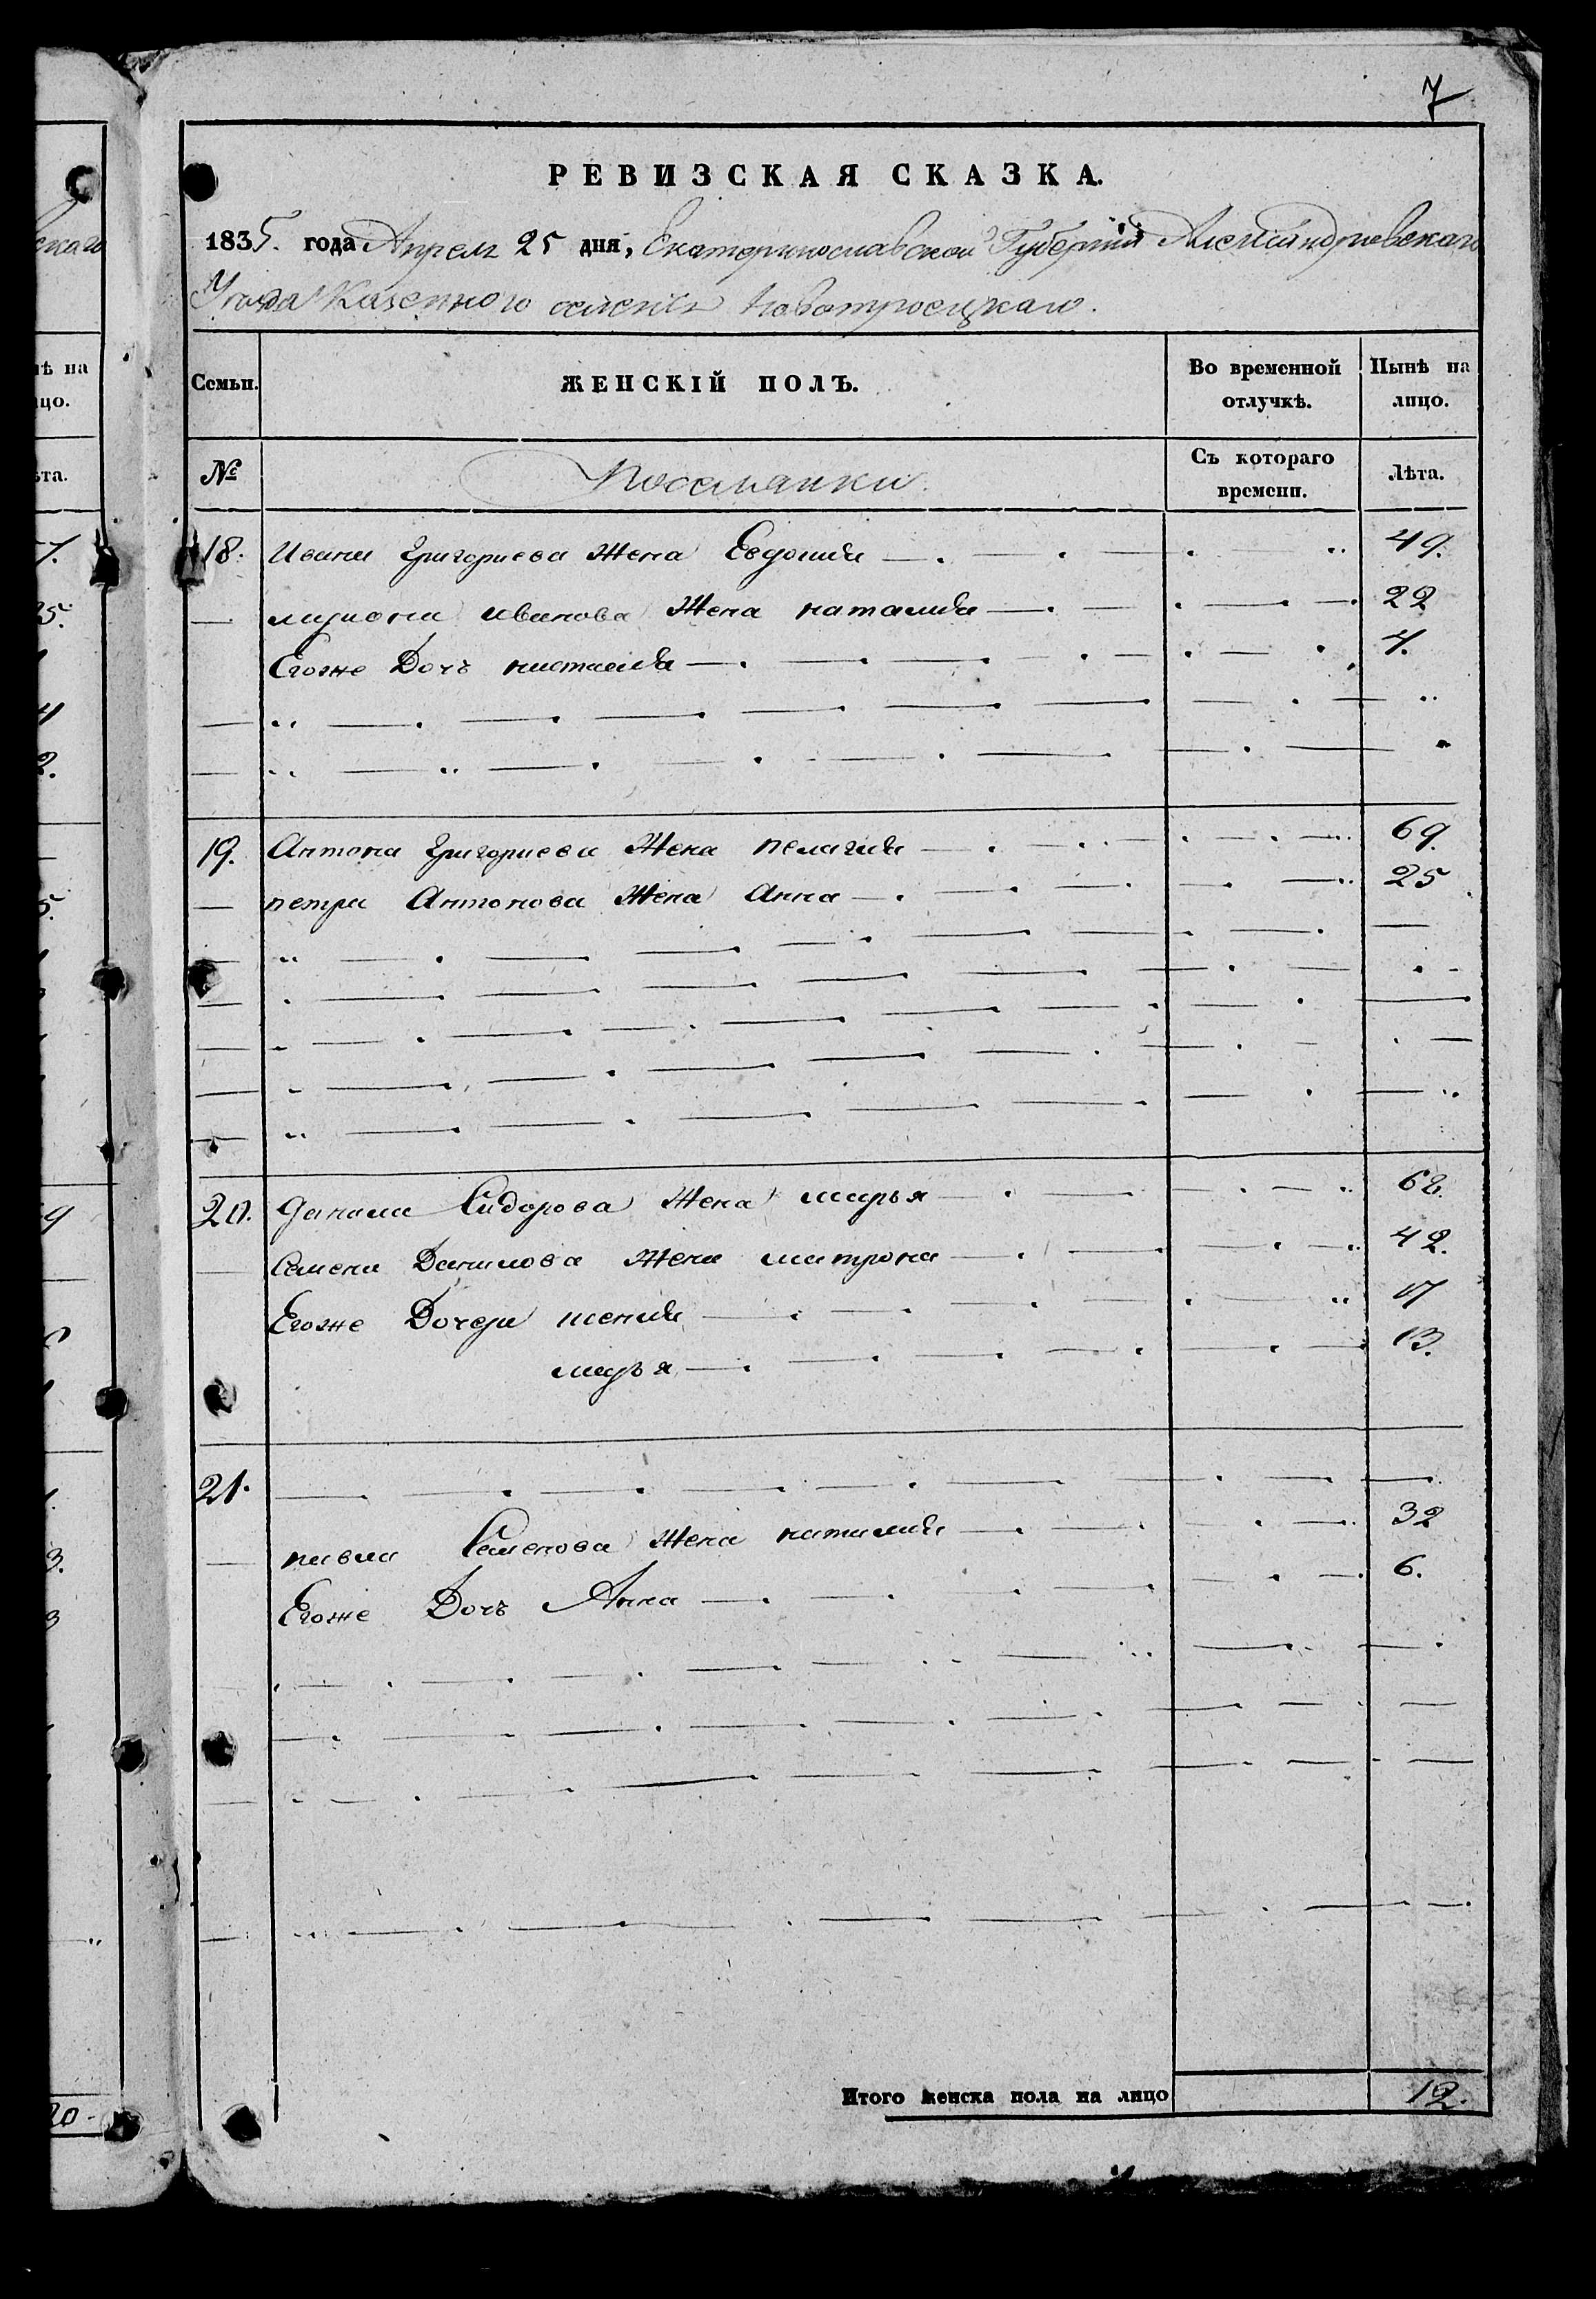 7
РЕВИЗСКАЯ СКАЗКА.
1835. года Апреля 25 дня, Екатеринославской Губернии Александриевскаго
Уезда Казенного селения Новотроецкаго.
Семьи. ЖЕНСКІЙ ПОЛЪ. Во временной отлучкѣ. Нынѣ на лицо.
№ Поселянки Съ котораго времени. Лѣта.
18. Ивана Григориева жена Евдокия 49.
Ивинова жена наталия 22
Егоже Дочь настасия 4.
19. Антона Григориева жена пелагия 69.
петра Антонова жена Анна 25
20. Данила Сидорова жена марья 68.
Семена Данилова жена матрона 42.
Егоже Дочери ксения 17
марья 13.
21.
павла Семенова жена наталия 32
Егоже Дочь Анна 6.
Итого женска пола на лицо 12.